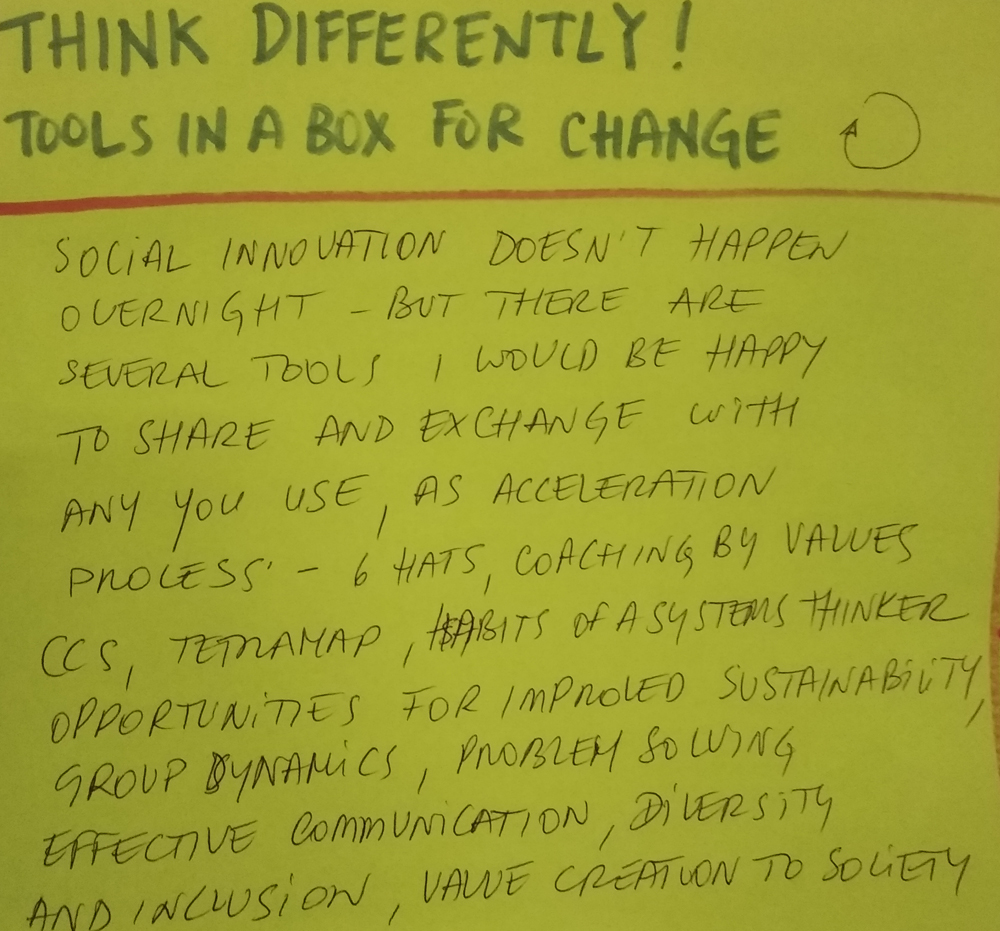 THINK DIFFERENTLY!
TOOLS IN A BOX FOR CHANGE
SOCIAL INNOVATION DOESN'T HAPPEN
OVERNIGHT - BUT THERE ARE
SEVERAL TOOLS I WOULD BE HAPPY
TO SHARE AND EXCHANGE WITH
ANY YOU USE, AS ACCELERATION
PROCESS' - 6 HATS, COACHING BY VALUES
CCS, TETRAMAP, HABITS OF A SYSTEMS THINKER
OPPORTUNITIES FOR IMPROVED SUSTAINABILITY,
GROUP DYNAMICS, PROBLEM SOLVING
EFFECTIVE COMMUNICATION, DIVERSITY
AND INCLUSION, VALUE CREATION TO SOCIETY